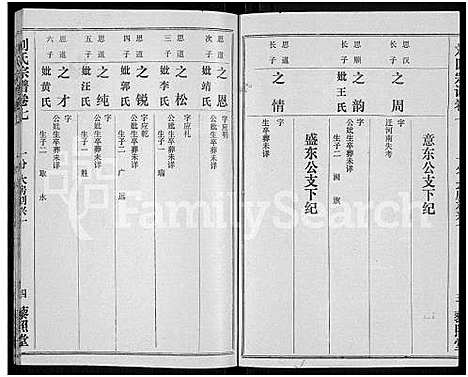 意东公支下纪
思汉
长子
之周
字
迁河南失考
盛东公支下纪
思顺
长子
之韵
妣王氏
字
公妣生卒葬未详
生子二
思道
长子
之情
字
思道
次子
之恩
妣靖氏
字应
公妣生卒葬未详
思道
三子
之松
妣李氏
字应礼
公妣生卒葬未详
生子一
瑞
思道
四子
之锐
妣郭氏
字应乾
公妣生卒葬未详
生子二
广
远
思道
五子
之纯
妣汪氏
字
公妣生卒葬未详
生子一
胜
思道
六子
之才
妣黄氏
字
公妣生卒葬未详
生子二
取
水
刘氏宗谱卷七
四
藜照堂
FamilySearch